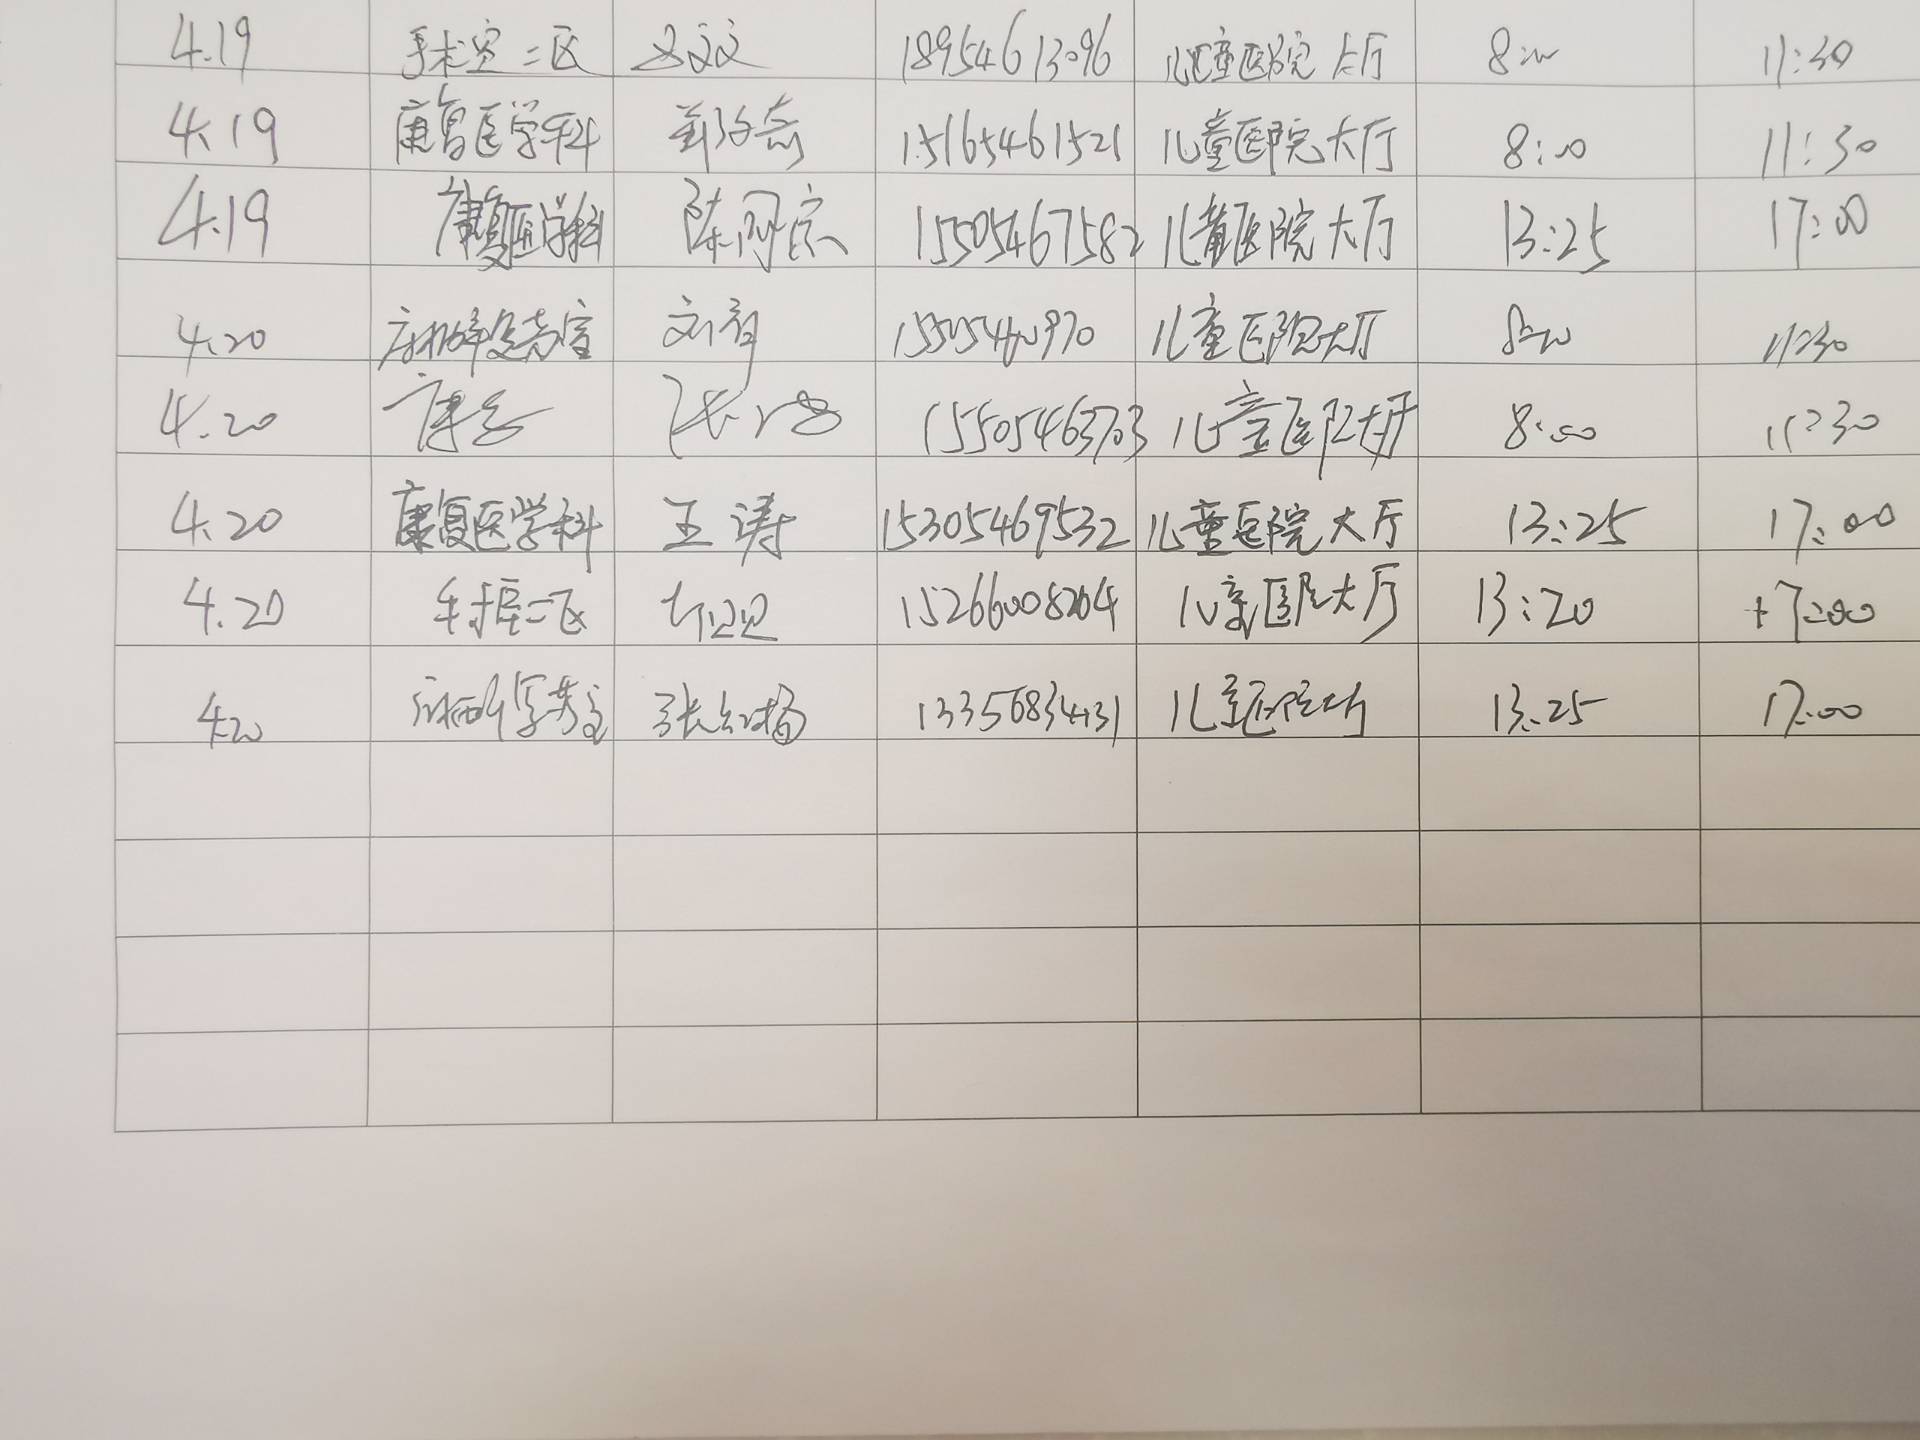 4.19 手术室二区 文文 18954613096 儿童医院大厅 8:00 11:30
4.19 康复医学科 15165461521 儿童医院大厅 8:00 11:30
4.19 康复医学科 陈同宗 15505467582 儿童医院大厅 13:25 17:00
4.20 刘青 儿童医院大厅 8:00 11:30
4.20 康复 15505463703 儿童医院大厅 8:00 11:30
4.20 康复医学科 王涛 15305469532 儿童医院大厅 13:25 17:00
4.20 二区 15266008204 儿童医院大厅 13:20 17:00
4.20 张 13356834131 儿童医院大厅 13:25 17:00